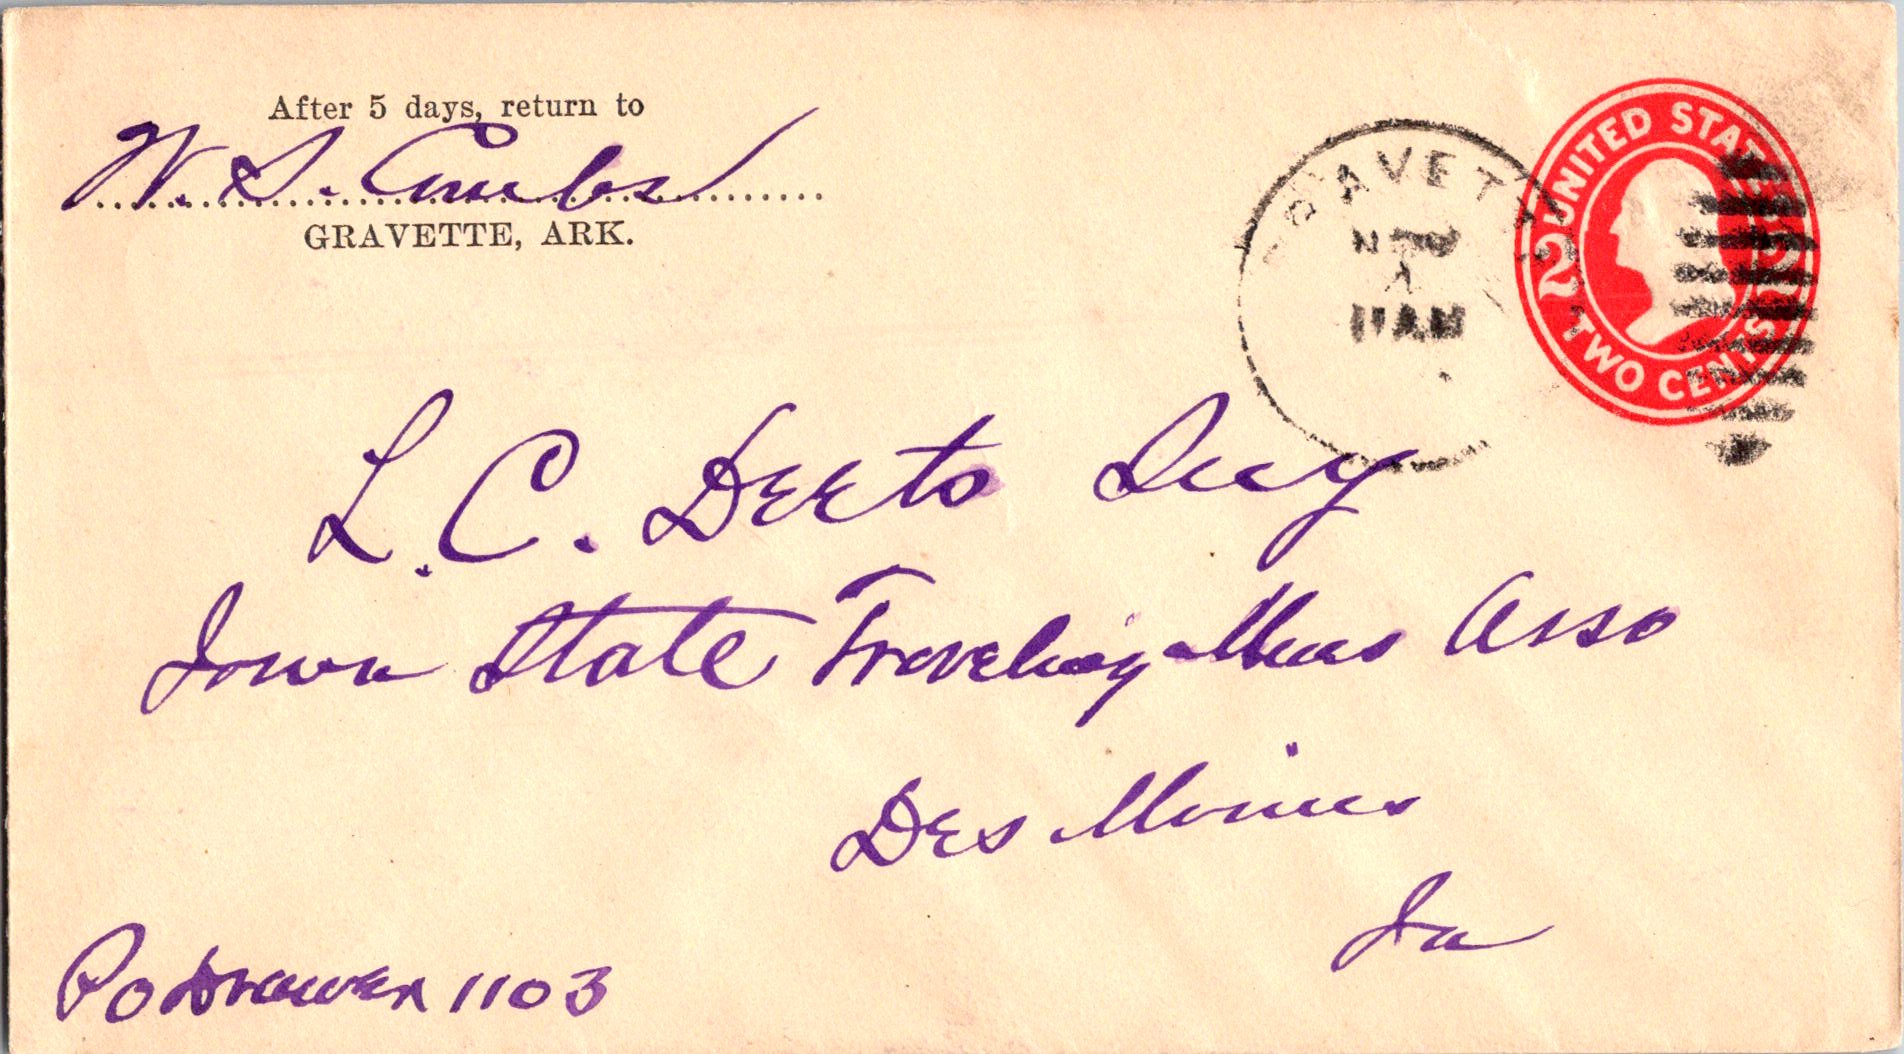 After 5 days, return to
W. S. Combs
GRAVETTE, ARK.
AVET
11 AM
UNITED STATES
2 2
TWO CENTS
L. C. Deets Secy
Iowa State Traveling Mens Asso
Des Moines
Ia
Po drawer 1103